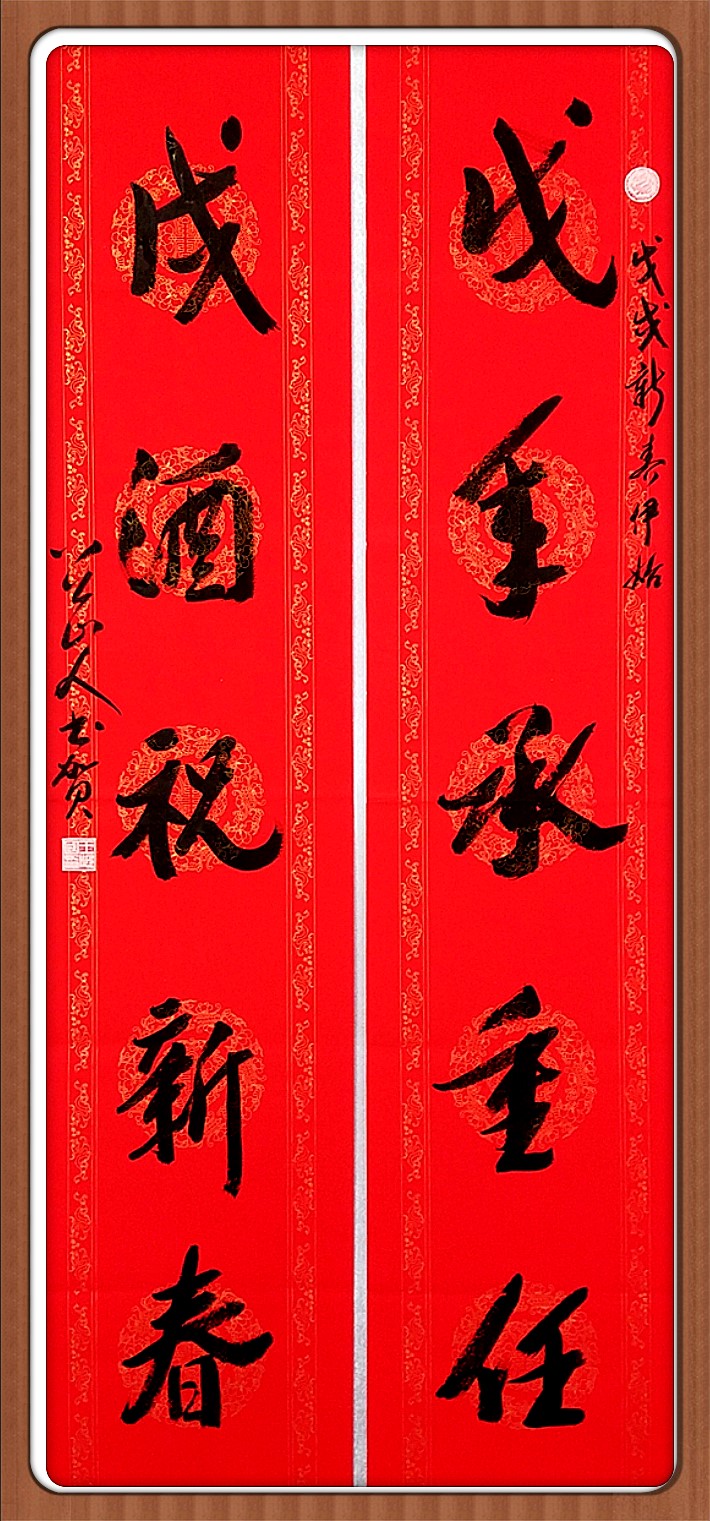 戊戌新春伊始
戊年承重任
戌酒祝新春
山人书贺